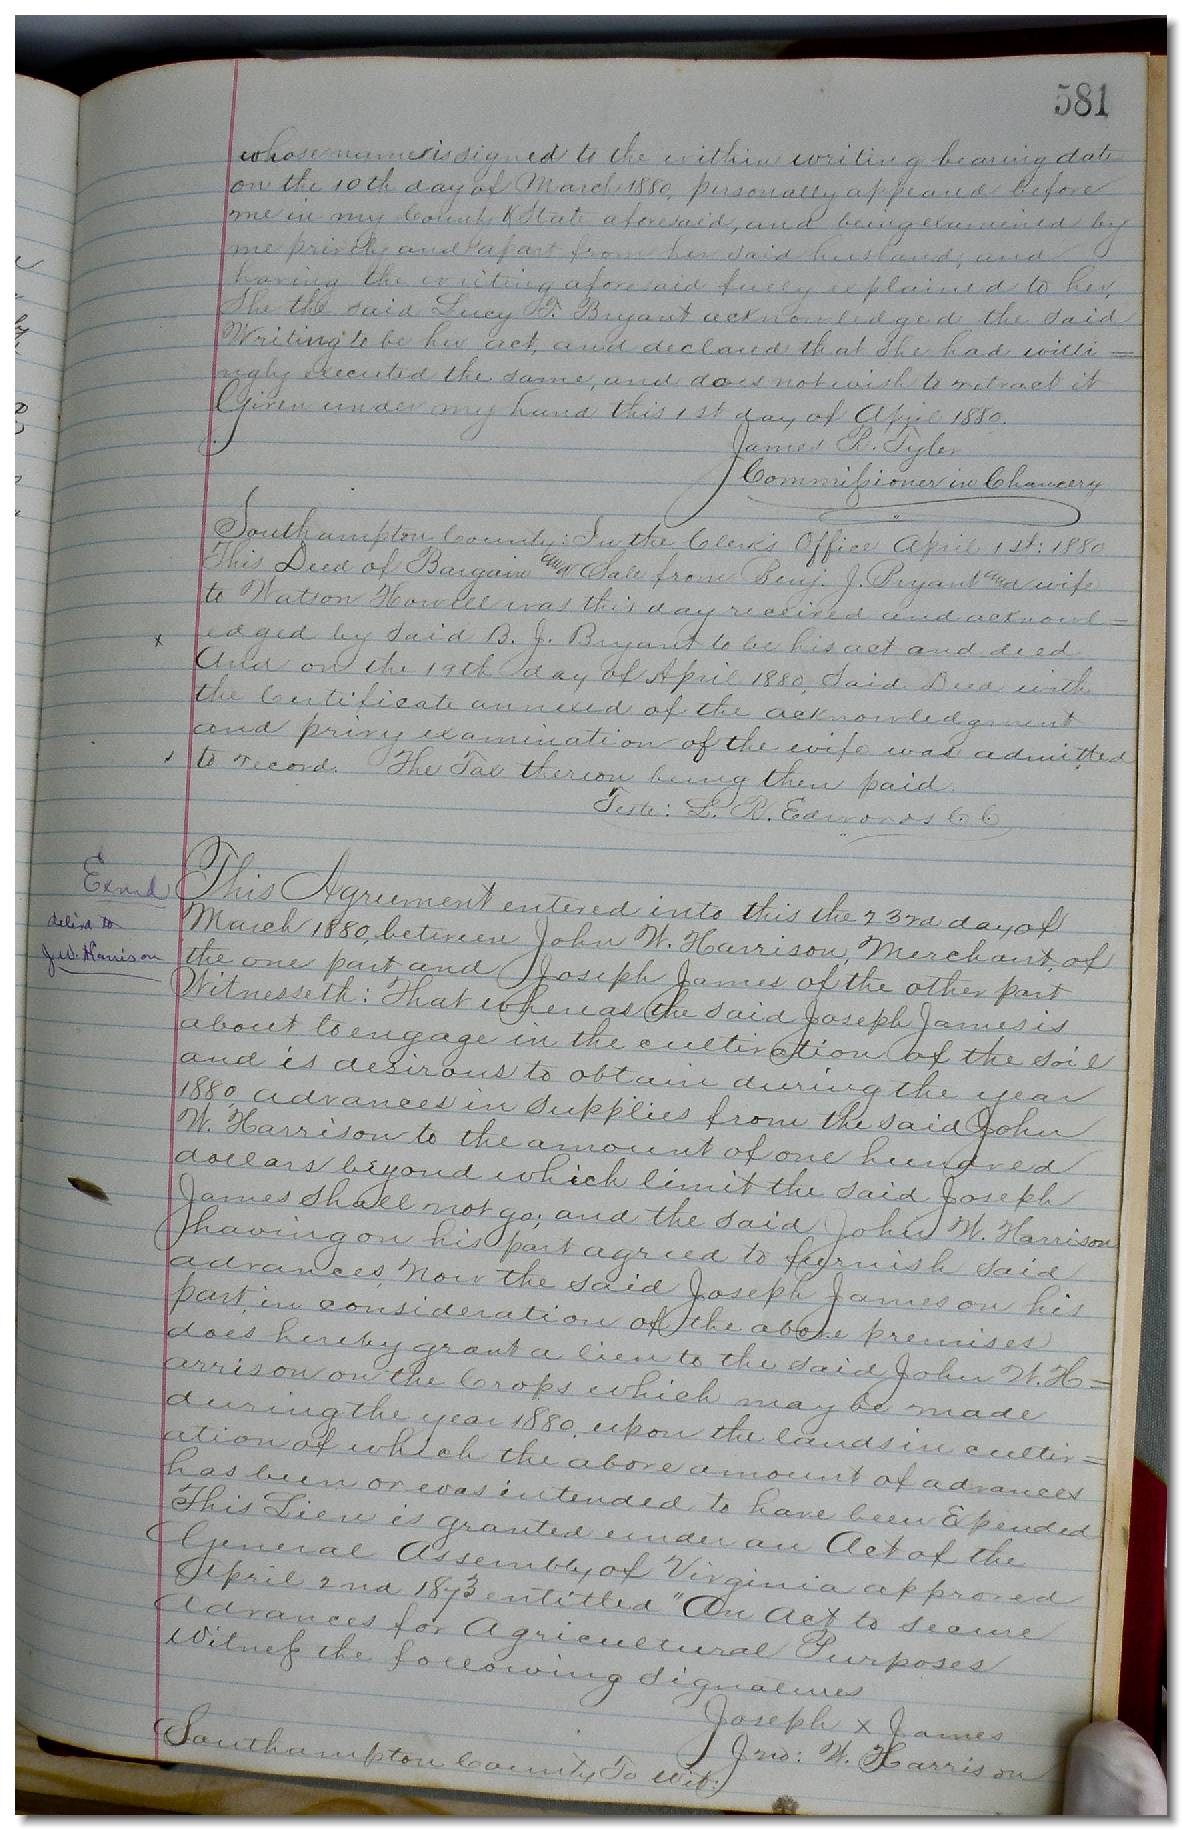 581
whose name is signed to the within writing bearing date
on the 10th day of March 1880, personally appeared before
me in my County & State aforesaid, and being examined by
me privily and apart from her said husband, and
having the writing aforesaid fully explained to her,
She the said Lucy F. Bryant acknowledged the said
Writing to be her act, and declared that she had willi=
ngly executed the same, and does not wish to retract it
Given under my hand this 1st day of April 1880.
James R. Tyler
Commissioner in Chancery
Southampton County: In the Clerk's Office April 1st: 1880
This Deed of Bargain and Sale from Benj. J. Bryant and wife
to Watson Howell was this day received and acknowl=
x edged by said B. J. Bryant to be his act and deed
And on the 19th day of April 1880, Said Deed with
the Certificate annexed of the acknowledgment
and privy examination of the wife was admitted
to record. The Tax thereon being then paid.
Teste: L. R. Edwards C C
Exmd
delivd to
J. W. Harrison
This Agreement entered into this the 23rd day of
March 1880, between John W. Harrison, Merchant, of
the one part, and Joseph James of the other part
Witnesseth: That whereas the said Joseph James is
about to engage in the cultivation of the soil
and is desirous to obtain during the year
1880 advances in supplies from the said John
W. Harrison to the amount of one hundred
dollars beyond which limit the said Joseph
James shall not go, and the said John W. Harrison
having on his part agreed to furnish said
advances, Now the said Joseph James on his
part, in consideration of the above premises
does hereby grant a lien to the said John W. H=
arrison on the Crops which may be made
during the year 1880, upon the lands in cultiv=
ation of which the above amount of advances
has been or was intended to have been Expended
This Lien is granted under an Act of the
General Assembly of Virginia approved
April 2nd 1873 entitled "An Act to secure
Advances for Agricultural Purposes
Witness the following signatures
Joseph x James
Jno: W. Harrison
Southampton County To Wit: